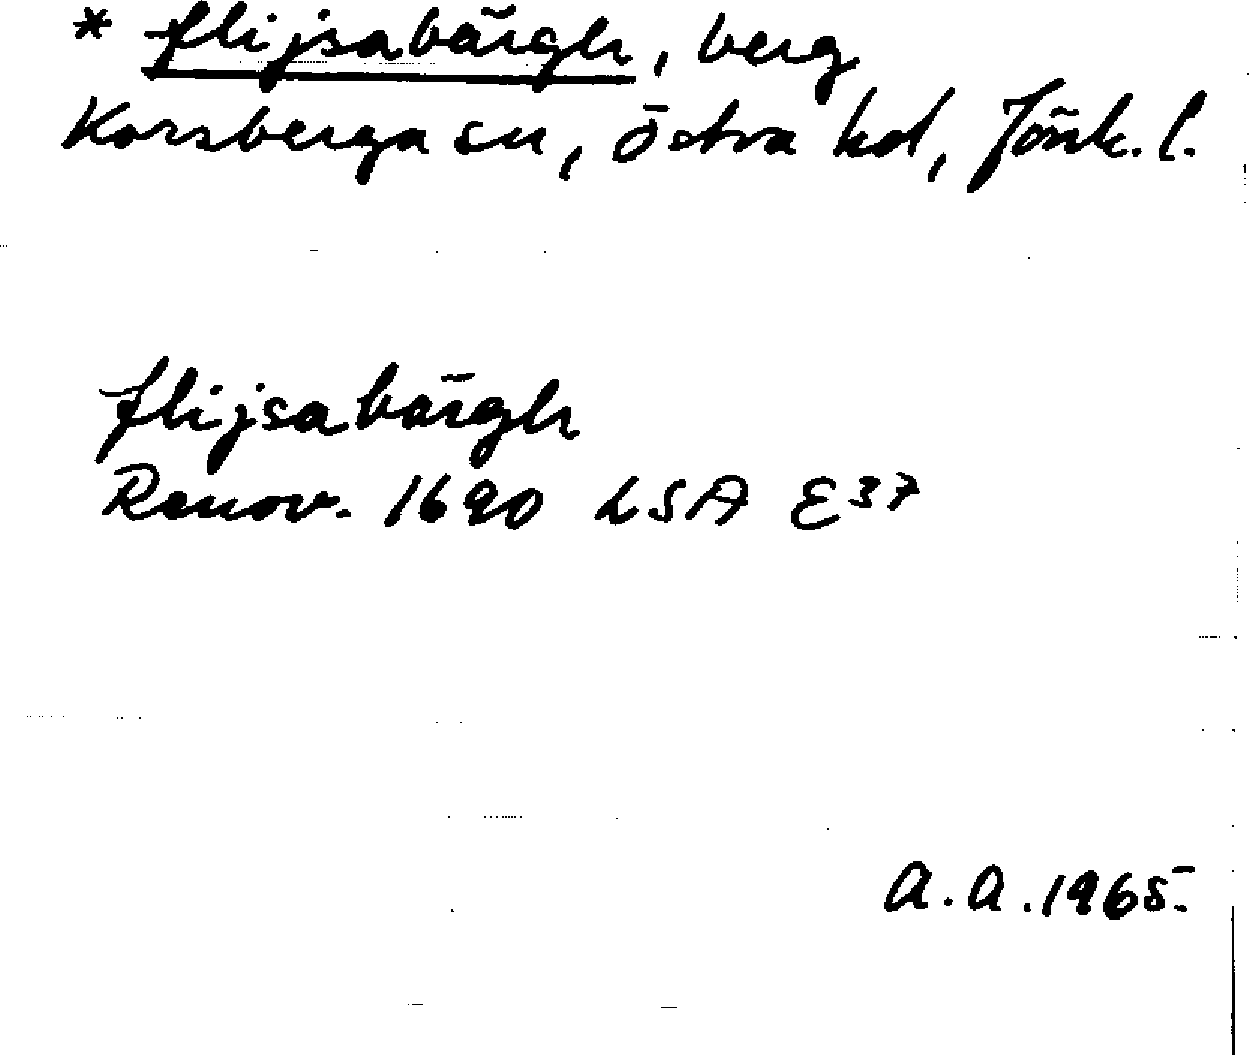 * flijsabärgh, berg
Korsberga sn, Östra hd, Jönk. l.
flijsabärgh
Renov. 1690 LSA E37
A.A. 1965.